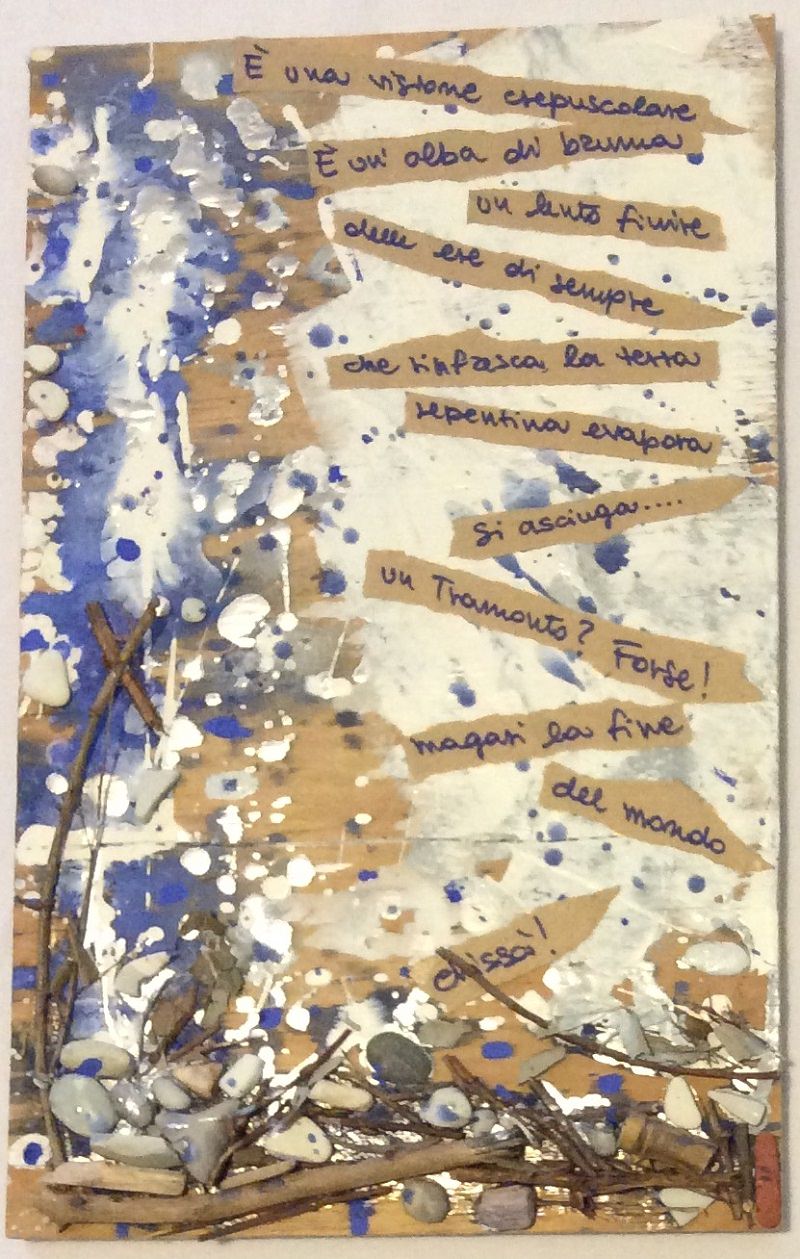 È una visione crepuscolare
È un' alba di bruma
un lento finire
delle ere di sempre
che rinfresca la terra
repentina evapora
si asciuga....
un Tramonto? Forse!
magari la fine
del mondo
chissà!